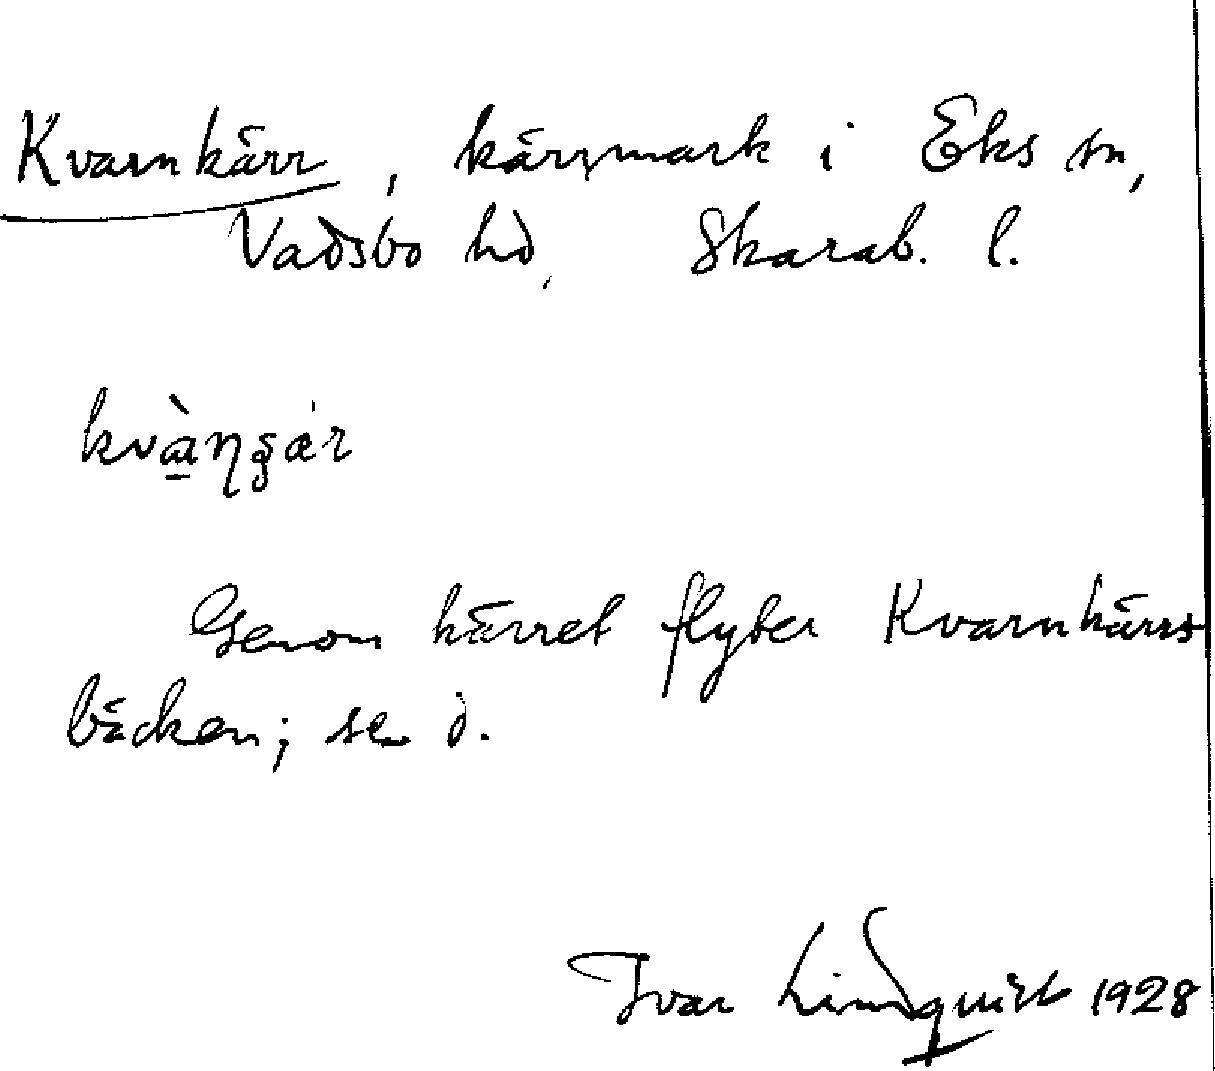 Kvarnkärr, kärrmark i Eks sn,
Vadsbo hd, Skarab. l.
kvàŋgær
Genom kärret flyter Kvarnkärrs
bäcken; se d.
Ivar Lindquist 1928